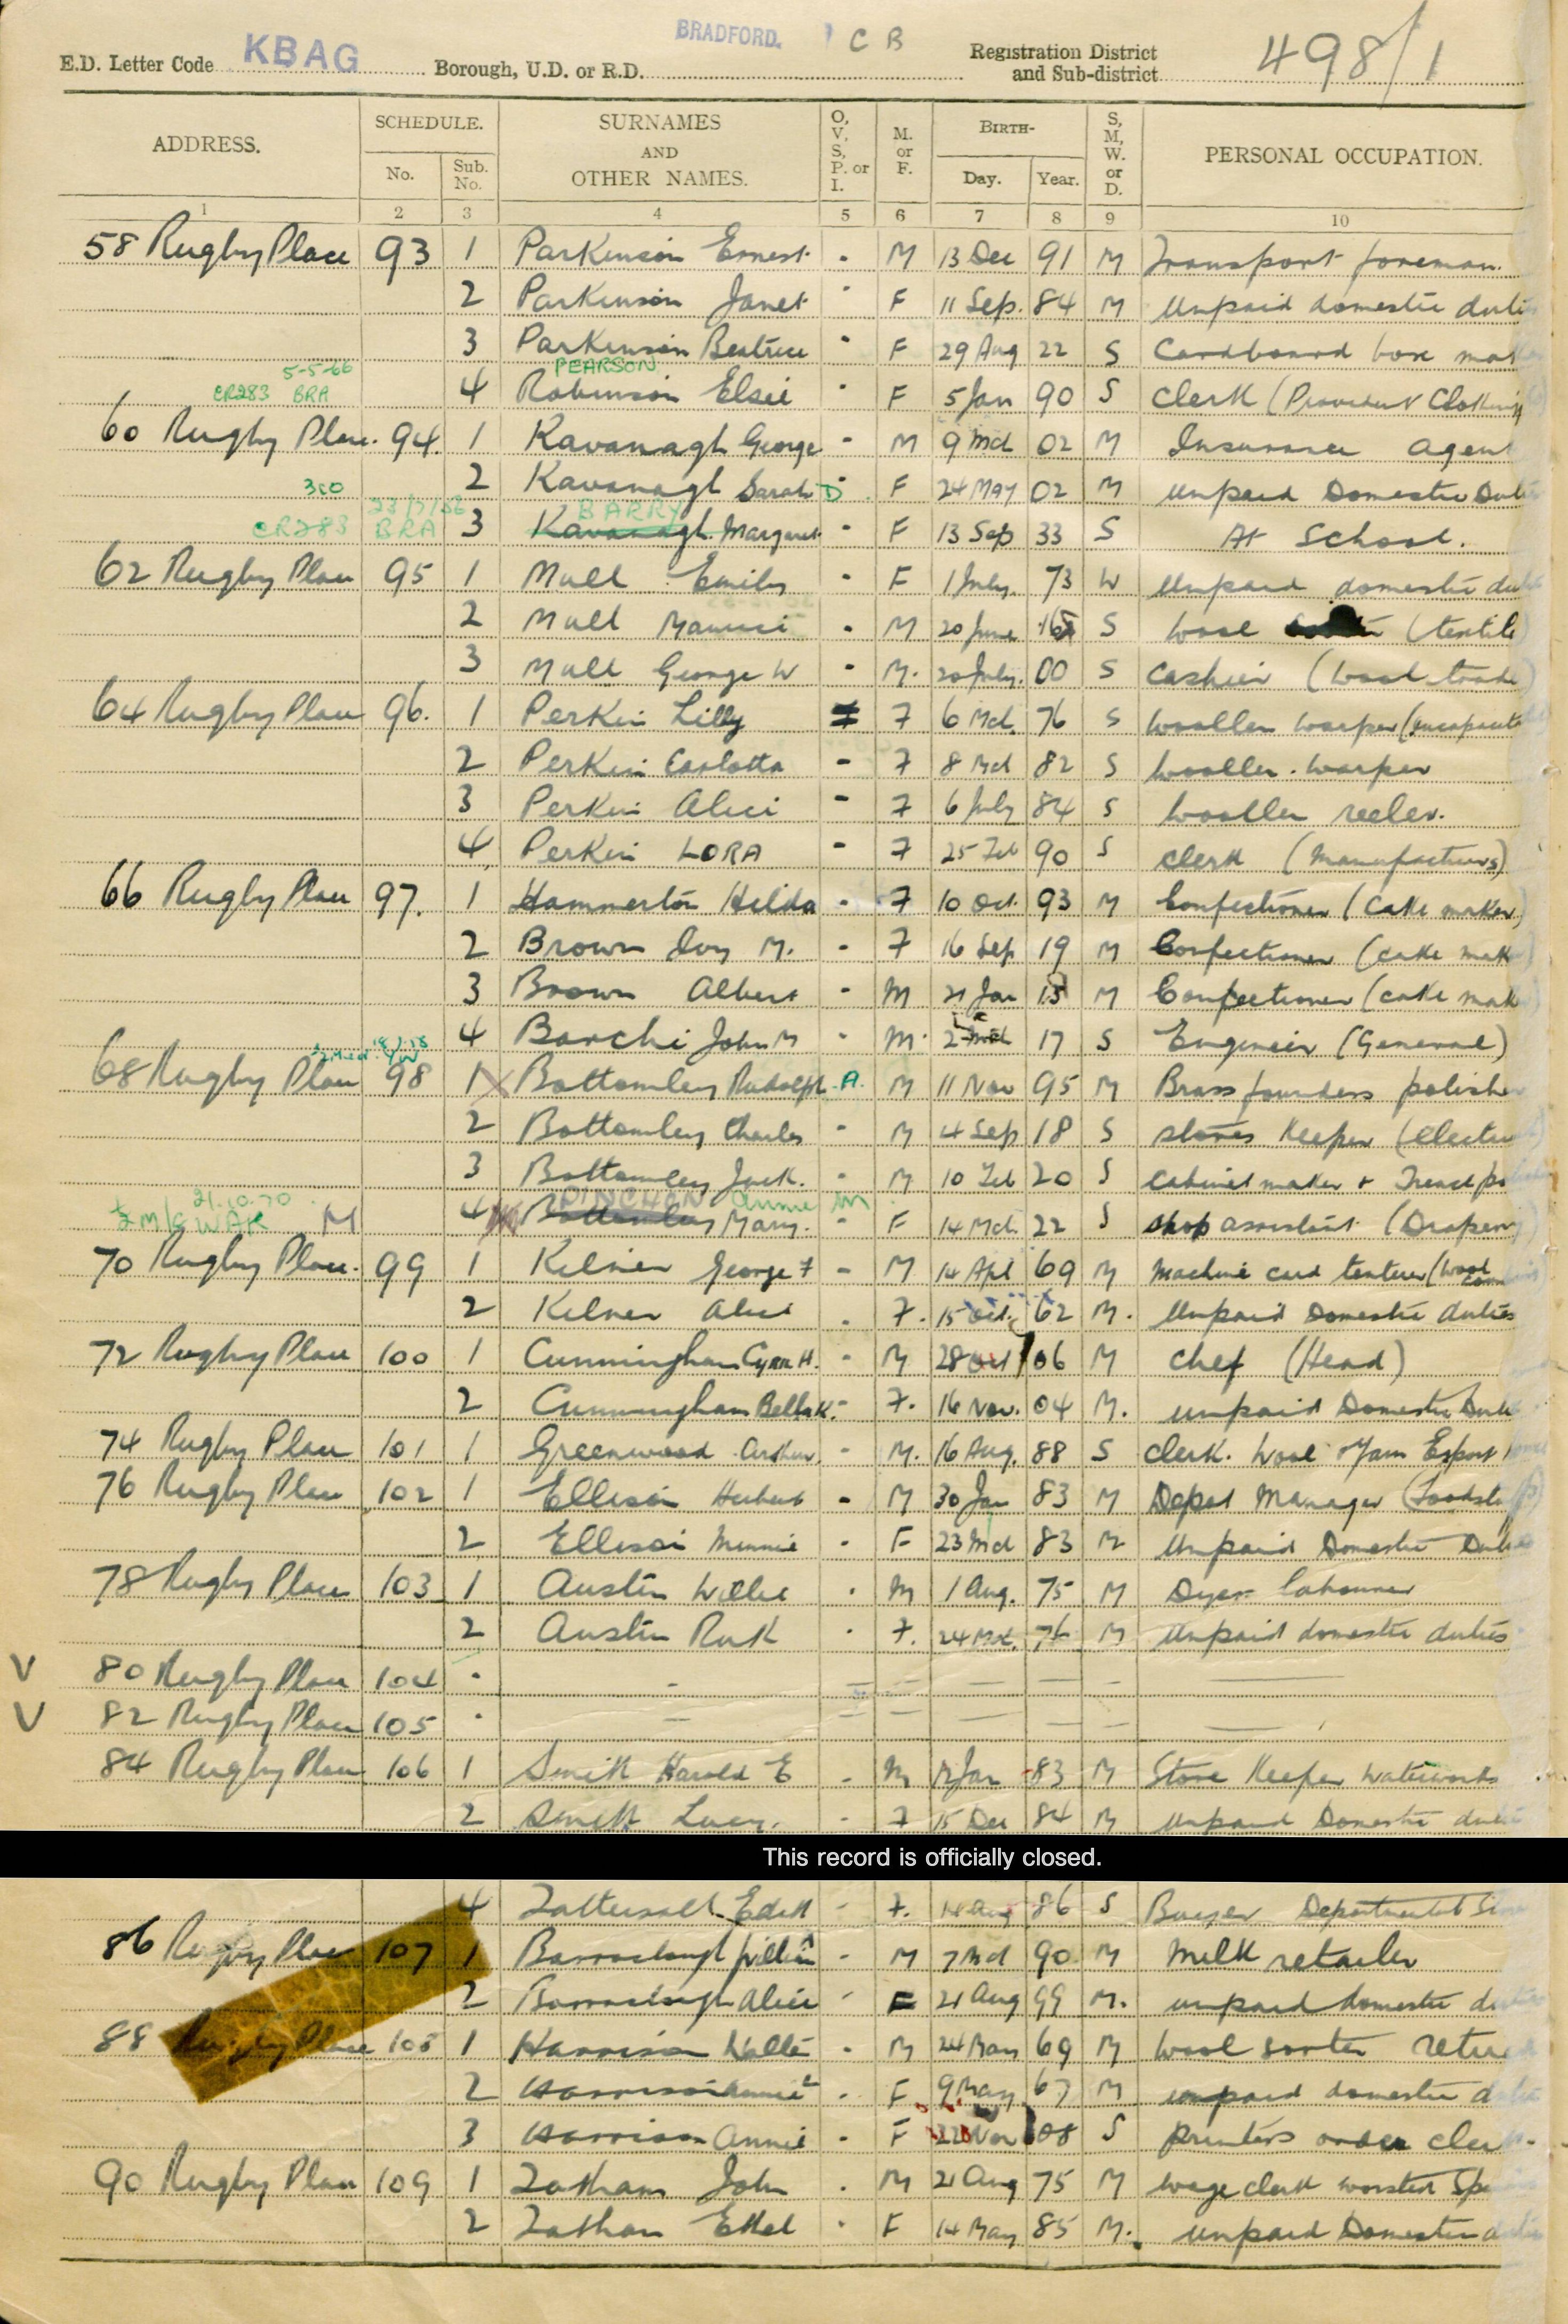 BRADFORD. C B
E.D. Letter Code KBAG Borough, U.D. or R.D. Registration District and Sub-district 498/1
ADDRESS. SCHEDULE. No. Sub. No. SURNAMES AND OTHER NAMES. O, V, S, P. or I. M. or F. BIRTH- Day. Year. S, M, W. or D. PERSONAL OCCUPATION.
1 2 3 4 5 6 7 8 9 10
58 Rugby Place 93 1 Parkinson Ernest - M 13 Dec 91 M Transport foreman.
2 Parkinson Janet - F 11 Sep. 84 M Unpaid domestic duties
3 Parkinson Beatrice - F 29 Aug 22 S Cardboard box
5-5-66 PEARSON
CR283 BRA 4 Robinson Elsie - F 5 Jan 90 S Clerk (Provident Clothing
60 Rugby Place. 94. 1 Kavanagh George - M 9 Mch 02 M Insurance agent
300 2 Kavanagh Sarah D F 24 May 02 M Unpaid Domestic Duties
23/7/56 BARRY
CR283 BRA 3 Kavanagh Margaret - F 13 Sep 33 S At School.
62 Rugby Place 95 1 Mull Emily - F 1 July. 73 W Unpaid domestic
2 Mull - M 20 June S Wool (textile)
3 Mull George W - M. 20 July. 00 S Cashier (Wool trade)
64 Rugby Place 96. 1 Perkin Lilly F 6 Mch. 76 S Woollen Warper (
2 Perkin Carlotta - F 8 Mch 82 S Woollen Warper
3 Perkin Alice - F 6 July 84 S Woollen reeler.
4 Perkin LORA - F 25 Feb 90 S Clerk (Manufacturers)
66 Rugby Place 97. 1 Hammerton Hilda - F 10 Oct. 93 M Confectioner (Cake maker)
2 Brown Ivy M. - F 16 Sep 19 M Confectioner (cake
3 Brown Albert - M 21 Jan M Confectioner (cake
4 Barchi John M - M. 2 17 S Engineer (General)
68 Rugby Place 98 1 Bottomley Rudolph A. M 11 Nov 95 M Brass founders polisher
2 Bottomley Charles - M 4 Sep 18 S Stores Keeper
3 Bottomley Jack. - M 10 Feb 20 S Cabinet maker + French
21.10.70 Annie
M 4 Bottomley Mary. - F 14 Mch. 22 S Shop assistant (Drapery)
70 Rugby Place. 99 1 Kilner George F - M 14 Apl 69 M Machine card tenterer (Wool
2 Kilner Alice - F. 15 Oct. 62 M. Unpaid Domestic duties
72 Rugby Place 100 1 Cunningham Cyril H. - M 28 Oct 06 M Chef (Head)
2 Cunningham Bella K. - F. 16 Nov. 04 M. Unpaid Domestic
74 Rugby Place 101 1 Greenwood Arthur. - M. 16 Aug. 88 S Clerk. Wool Yarn Export
76 Rugby Place 102 1 Ellison Herbert - M 30 Jan 83 M Depot Manager
2 Ellison Minnie - F 23 Mch 83 M Unpaid Domestic
78 Rugby Place 103 1 Austin Willie - M 1 Aug. 75 M Dyers labourer
2 Austin Ruth - F. 24 76 M Unpaid domestic duties
V 80 Rugby Place 104 -
V 82 Rugby Place 105 -
84 Rugby Place 106 1 Smith Harold E - M Jan 83 M Store Keeper Waterworks
2 Smith Lucy. - F 15 Dec 84 M Unpaid Domestic
This record is officially closed.
4 Tattersall Edith - F. Aug 86 S Buyer Departmental
86 Rugby Place 107 1 Barraclough William - M 7 Mch 90 M Milk retailer
2 Barraclough Alice - F 21 Aug 99 M. Unpaid domestic
88 Rugby Place 108 1 Harrison - M 24 May 69 M Wool sorter
2 Harrison Annie - F 9 May 67 M unpaid domestic
3 Harrison Annie - F 22 Nov 08 S Printers order
90 Rugby Place 109 1 Latham John - M 21 Aug 75 M Wage clerk worsted
2 Latham Ethel - F 14 May 85 M. Unpaid Domestic